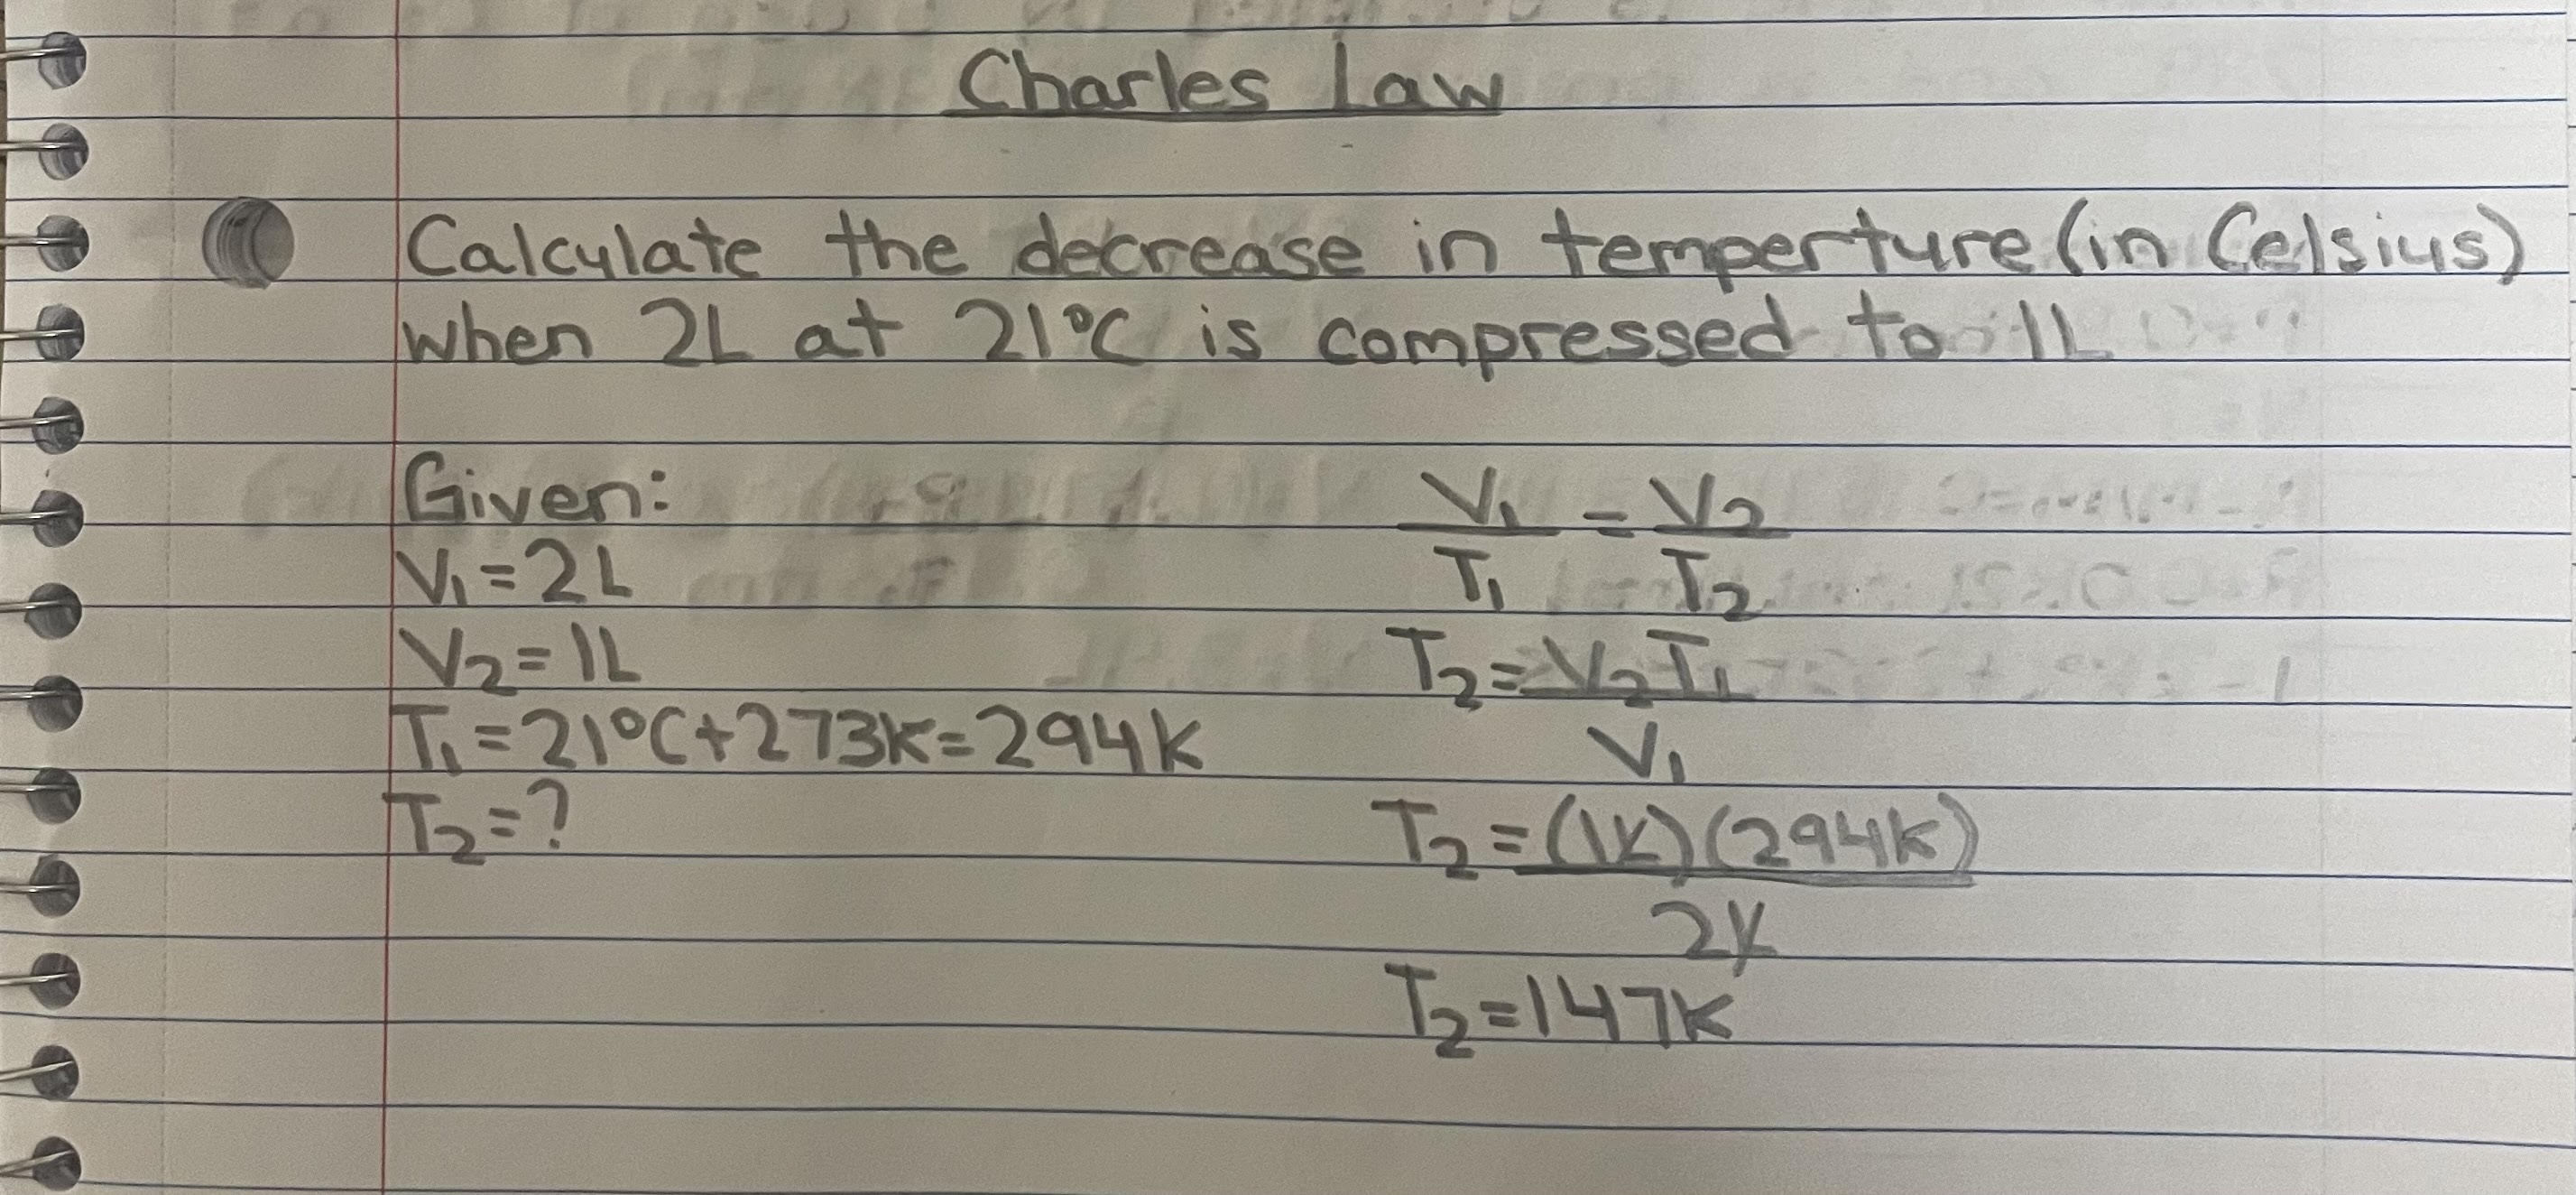 Charles Law
Calculate the decrease in temperture (in Celsius)
when 2L at 21°C is compressed to 1L
Given:
V₁=2L
V₂=1L
T₁=21°C+273K=294K
T₂=?
V₁/T₁ = V₂/T₂
T₂=V₂T₁/V₁
T₂=(1L)(294K)/2L
T₂=147K